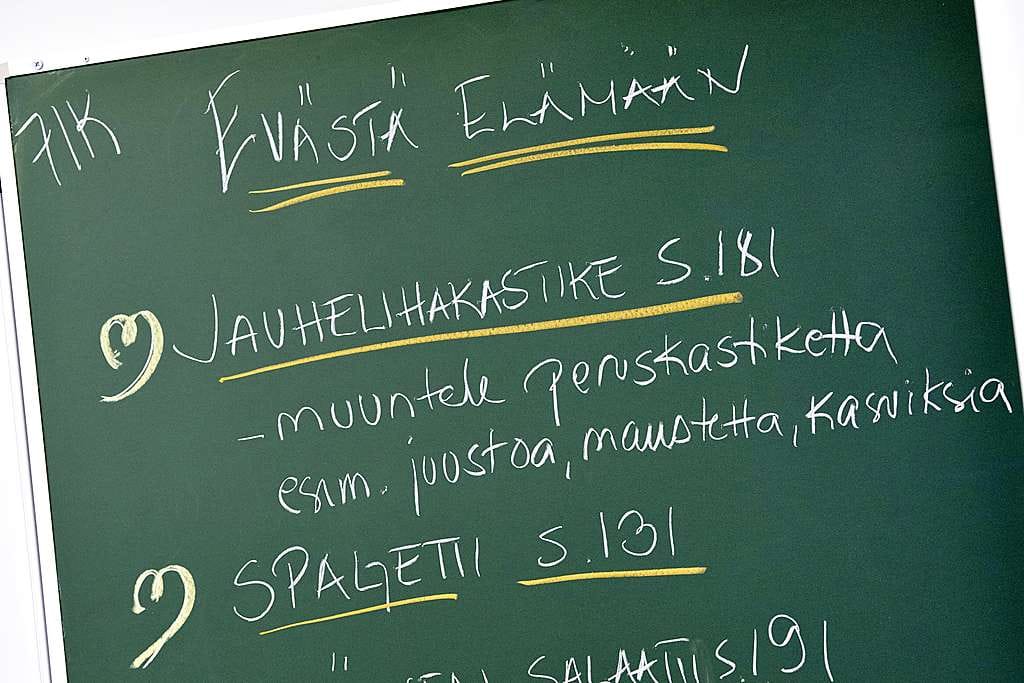 71K EVÄSTÄ ELÄMÄÄN
JAUHELIHAKASTIKE S.181
- muuntele peruskastiketta
esim. juustoa, maustetta, kasviksia
SPAGETTI S.131
SALAATTI S.191